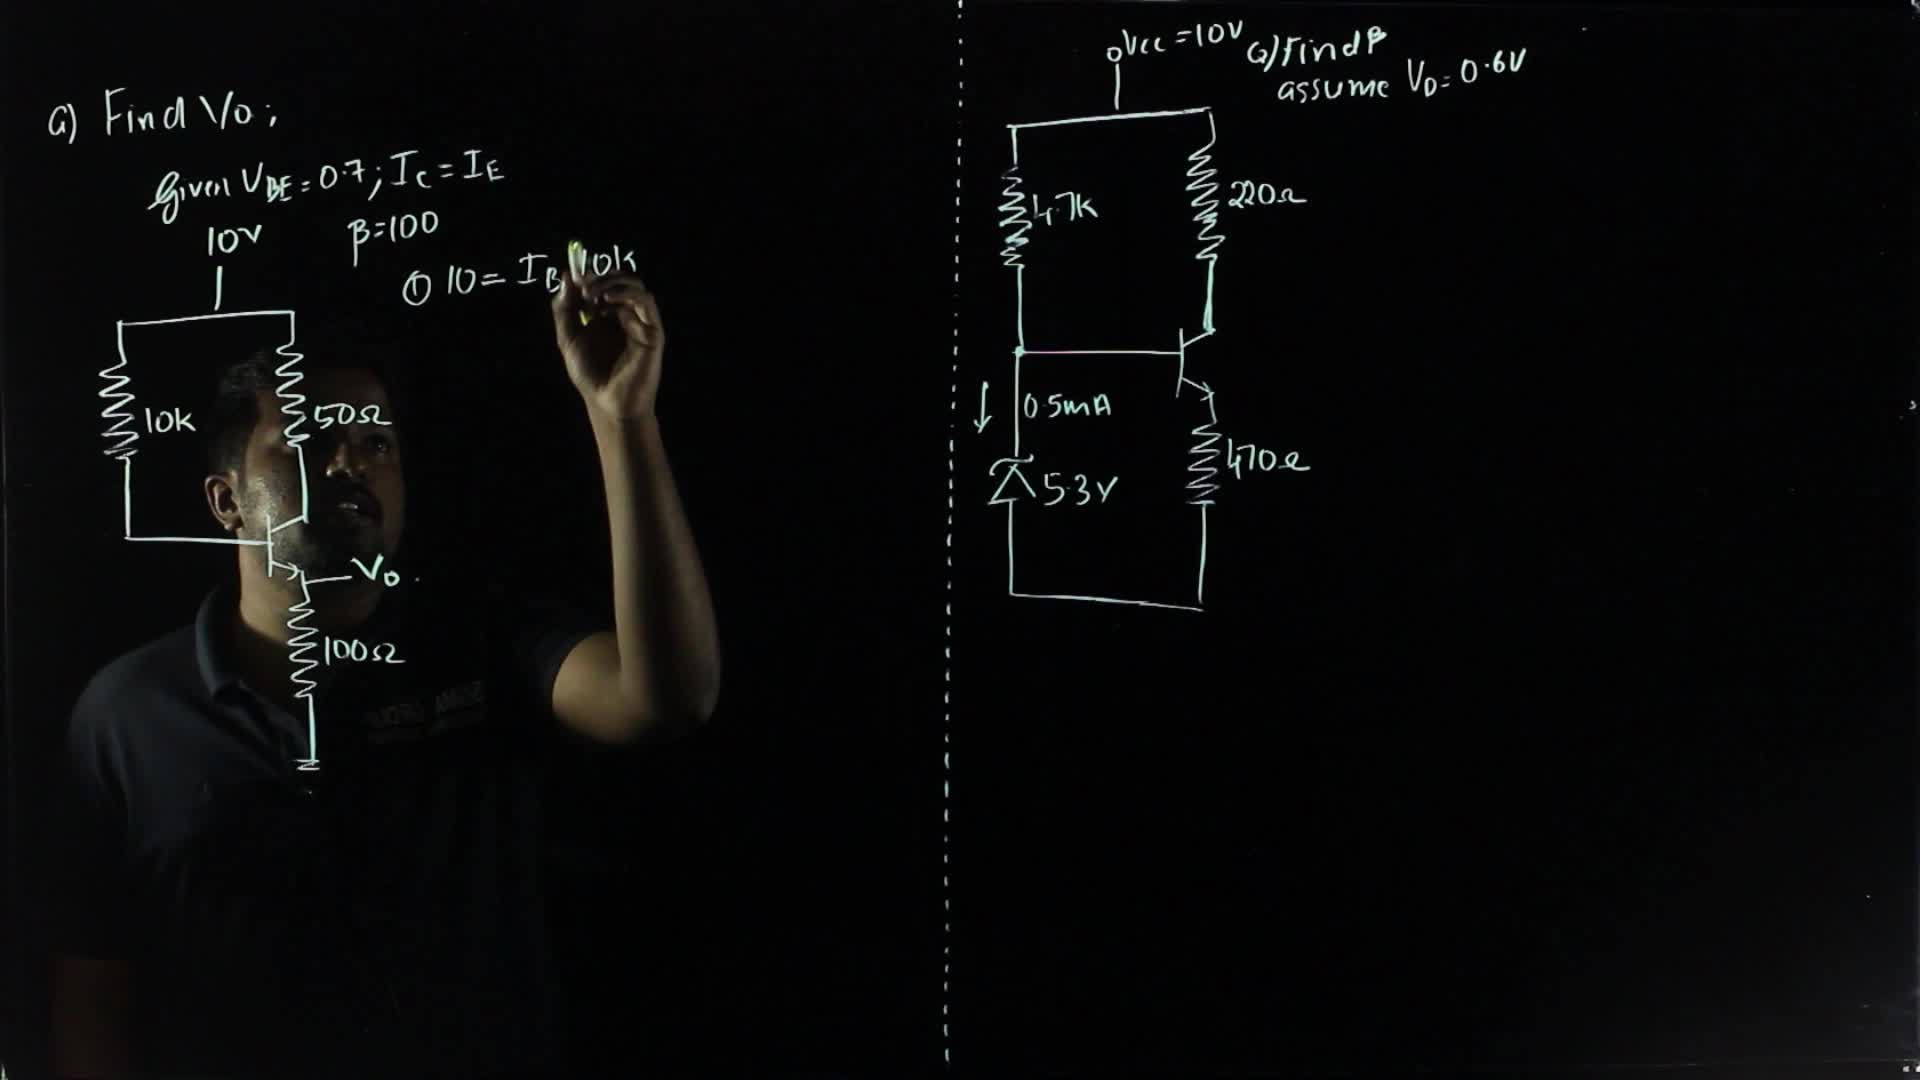 Q) Find Vo;
Given VBE = 0.7; IC = IE
β=100
10V
① 10 = IB 10k
10k
50Ω
Vo.
100Ω
Vcc = 10V
Q) Find β
assume VD = 0.6V
4.7K
220Ω
0.5mA
5.3V
470Ω